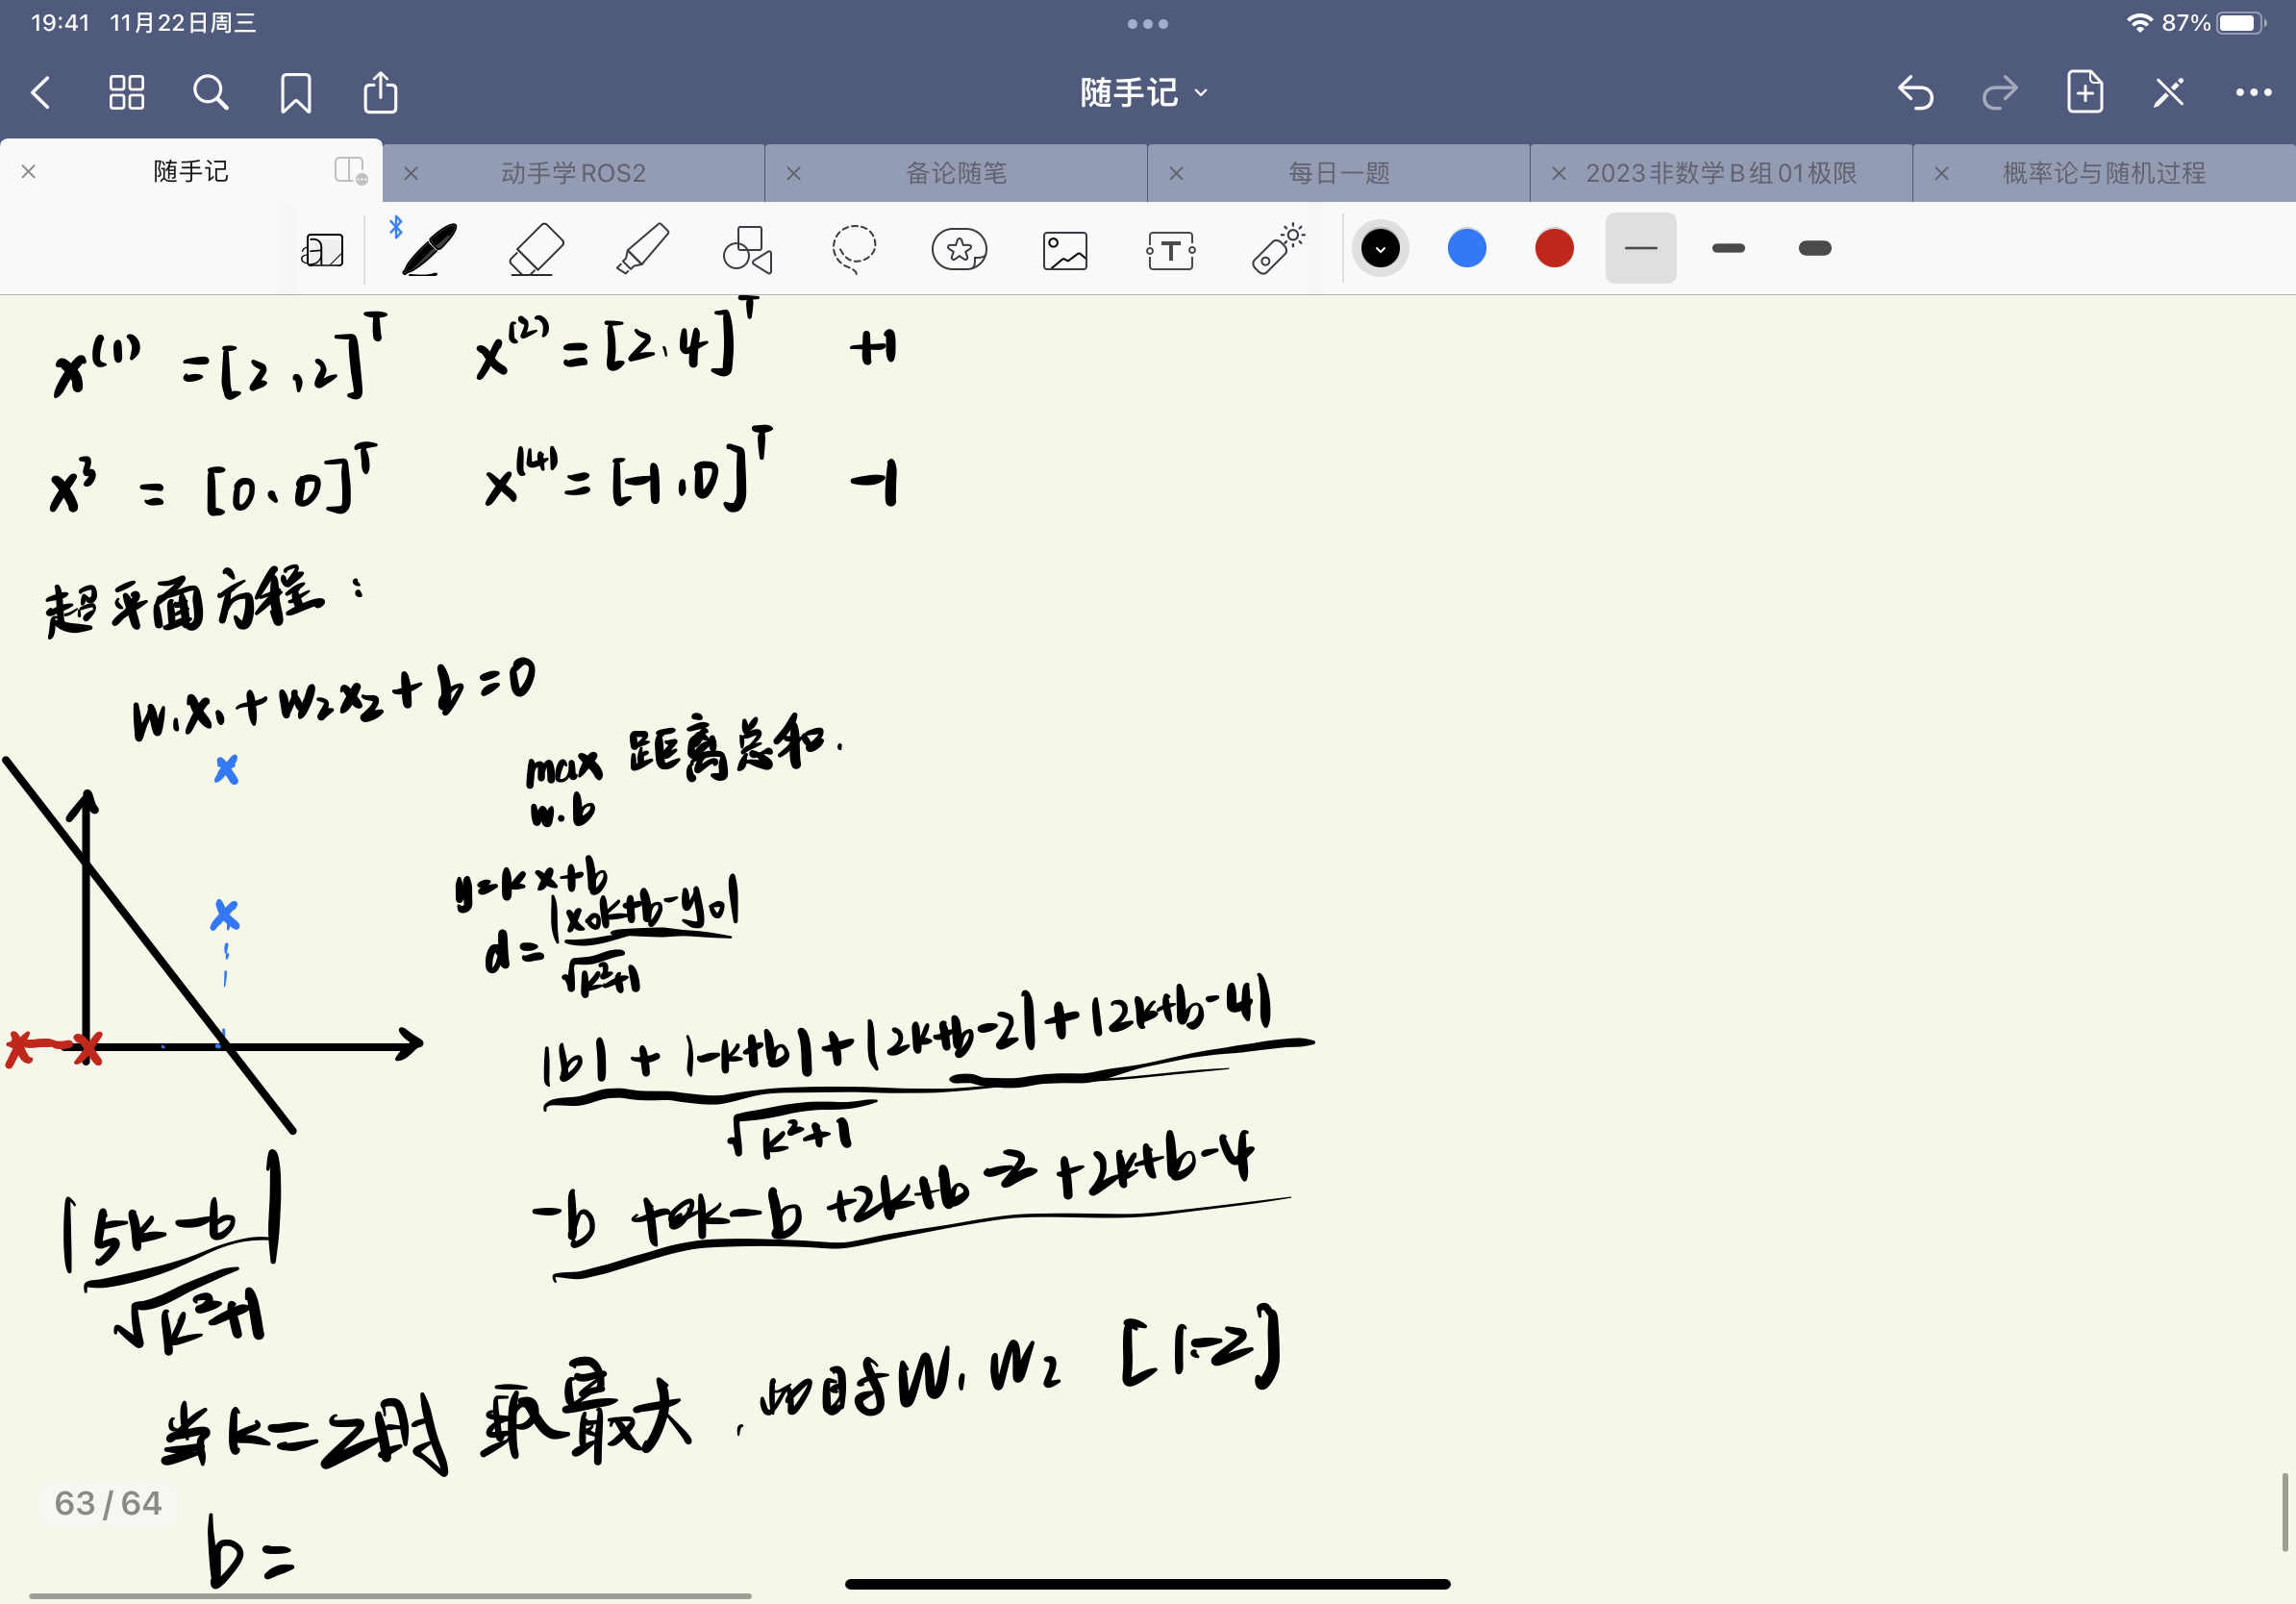 19:41 11月22日周三 87%
随手记
随手记 动手学ROS2 备论随笔 每日一题 2023非数学B组01极限 概率论与随机过程
x^(1) = [2,2]^T x^(2) = [2,4]^T +1
x^3 = [0,0]^T x^(4) = [-1,0]^T -1
超平面方程：
w₁x₁+w₂x₂+b=0
max 距离总和.
w.b
y=kx+b
d= |x₀k+b-y₀| / √k²+1
|b| + |-k+b| + |2k+b-2| + |2k+b-4|
√k²+1
-b +k-b +2k+b-2 +2k+b-4
|5k-b|
√k²+1
当k=2时 取最大, 即时W₁ W₂ [1,-2]
63 / 64
b=